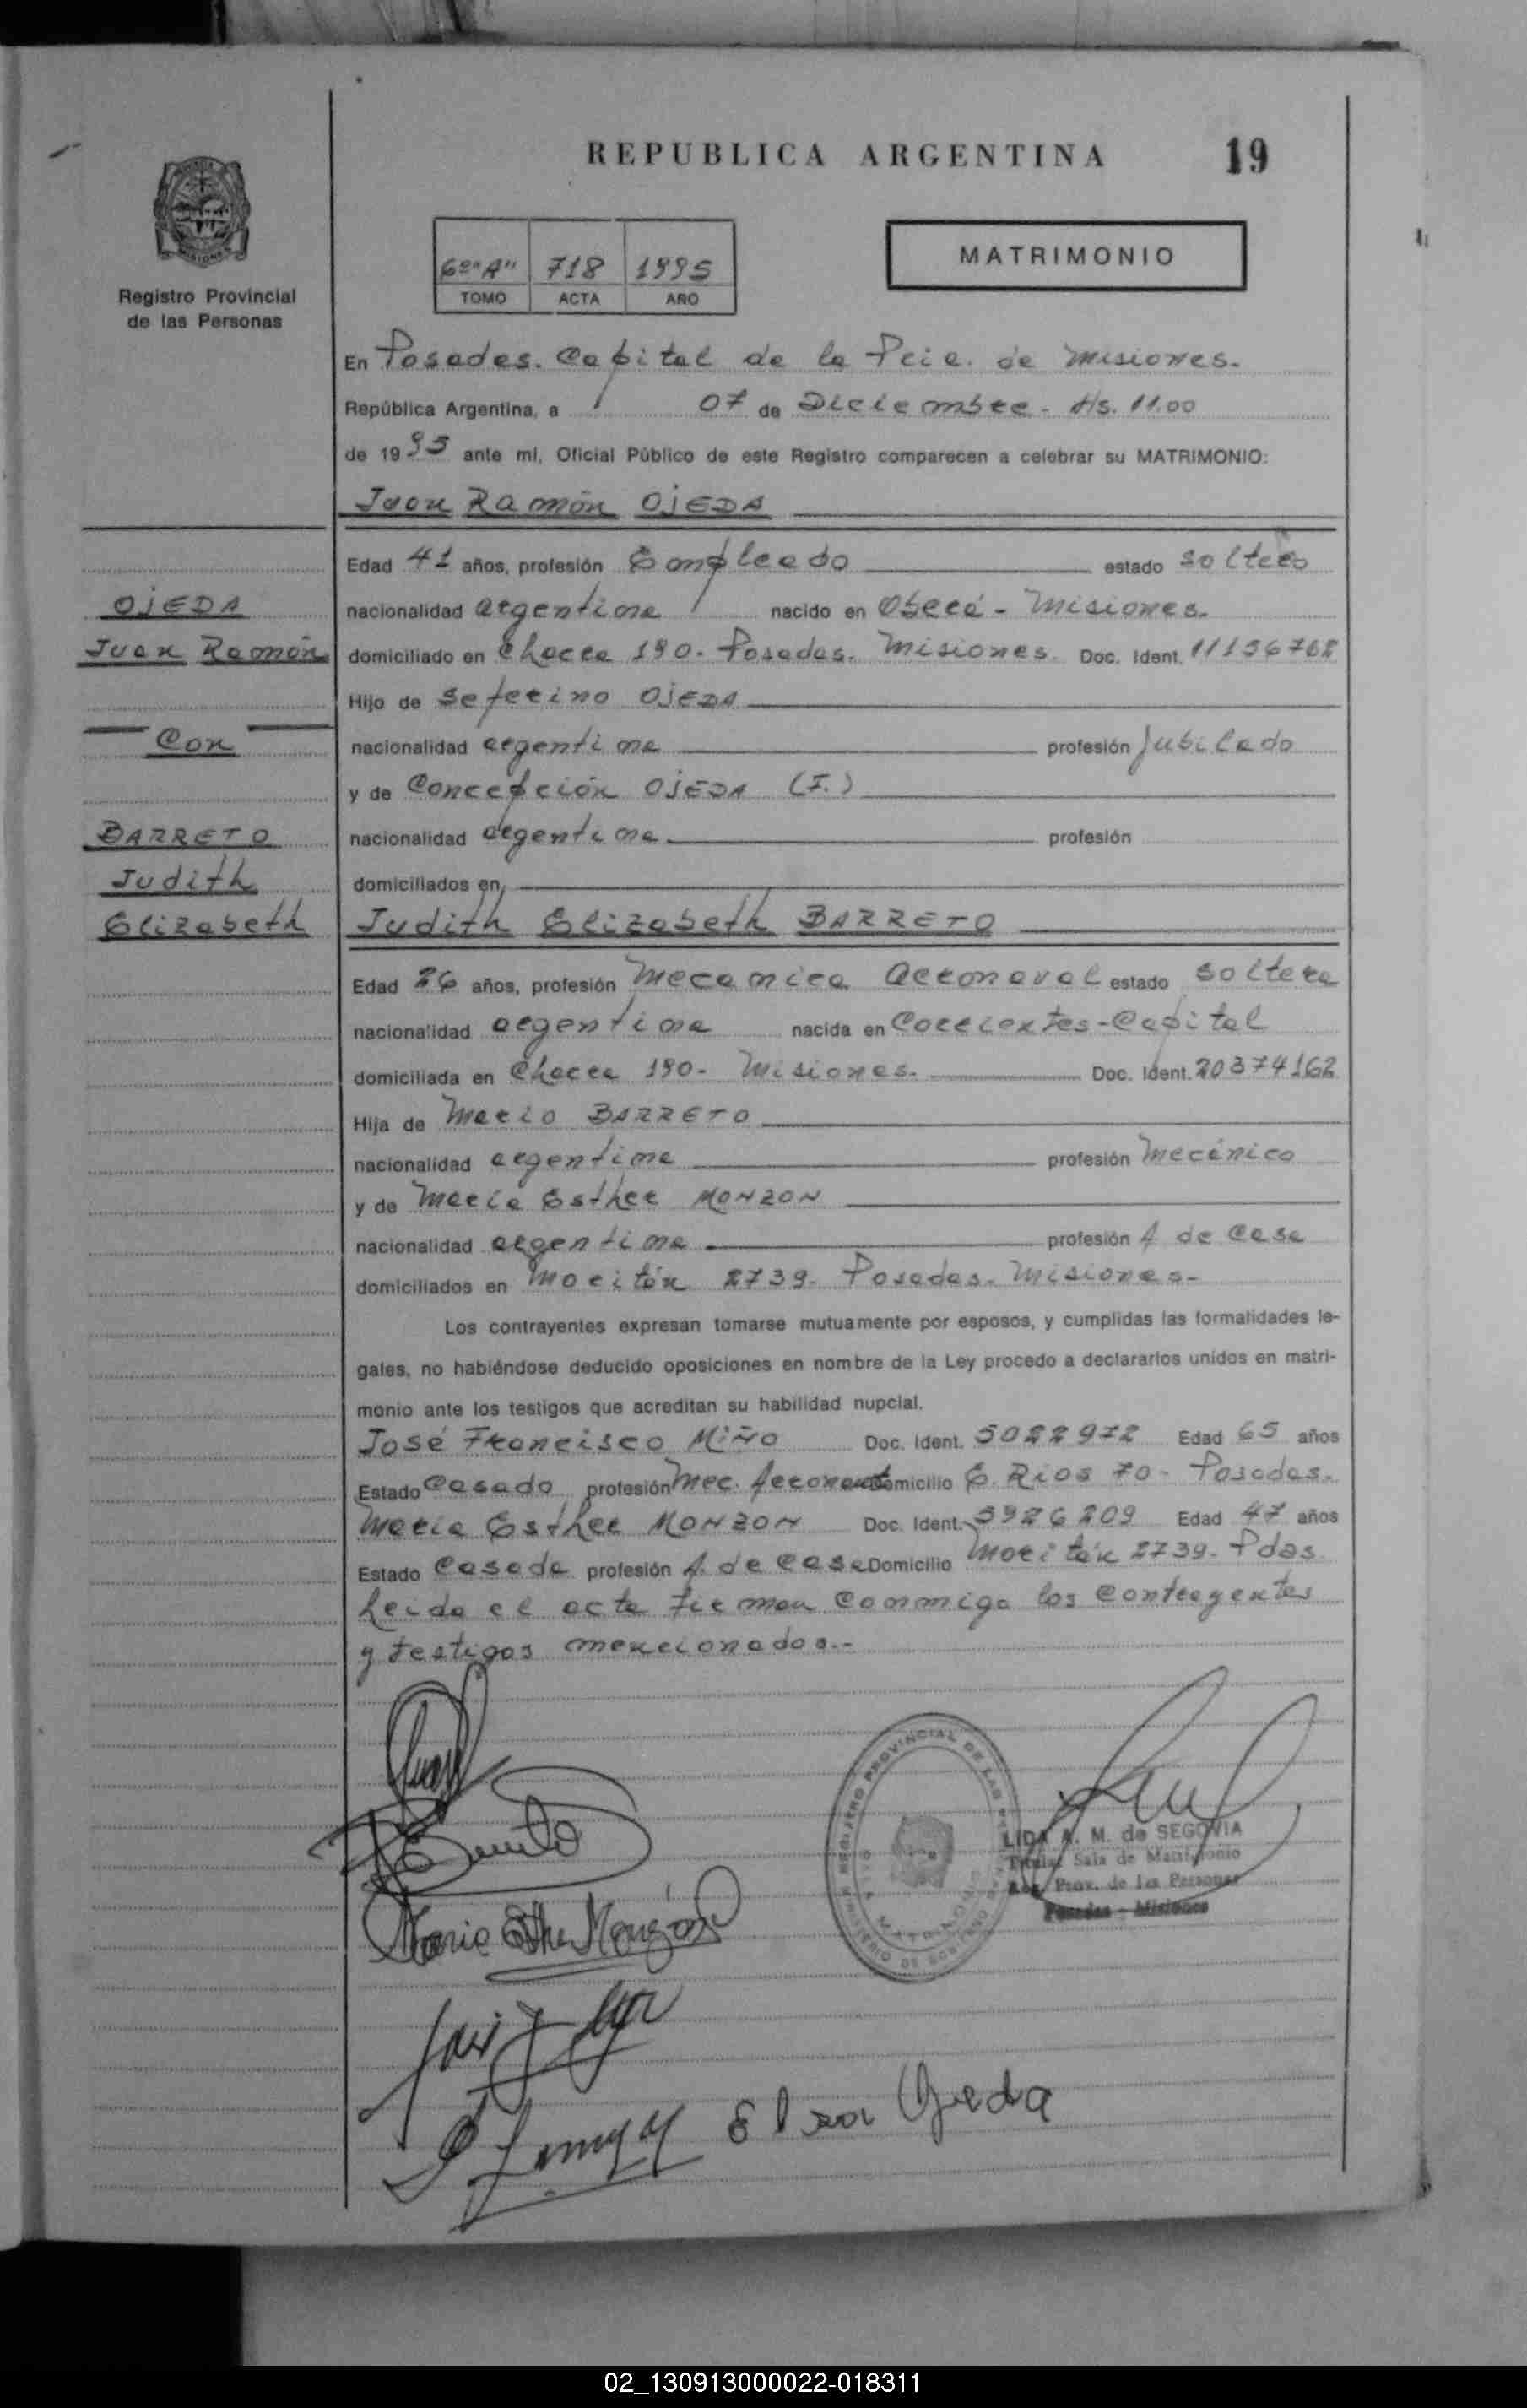 REPUBLICA ARGENTINA
19
Registro Provincial
de las Personas
6º "A" 718 1995
TOMO ACTA AÑO
MATRIMONIO
En Posadas. Capital de la Pcia. de Misiones.-
República Argentina, a 07 de Diciembre - Hs. 11.00
de 1995 ante mí, Oficial Público de este Registro comparecen a celebrar su MATRIMONIO:
Juan Ramón OJEDA
OJEDA
Juan Ramón
Con
BARRETO
Judith
Elizabeth
Edad 41 años, profesión Empleado estado soltero
nacionalidad argentina nacido en Oberá - Misiones.
domiciliado en Chacra 190. Posadas. Misiones. Doc. Ident. 11156768
Hijo de Seferino OJEDA
nacionalidad argentina profesión Jubilado
y de Concepción OJEDA (F.)
nacionalidad argentina profesión
domiciliados en
Judith Elizabeth BARRETO
Edad 26 años, profesión Mecanica Aeronaval estado soltera
nacionalidad argentina nacida en Corrientes-Capital
domiciliada en Chacra 190- Misiones. Doc. Ident. 20374162
Hija de Mario BARRETO
nacionalidad argentina profesión Mecánico
y de Maria Esther MONZON
nacionalidad argentina profesión A de Casa
domiciliados en Moritán 2739. Posadas. Misiones-
Los contrayentes expresan tomarse mutuamente por esposos, y cumplidas las formalidades le-
gales, no habiéndose deducido oposiciones en nombre de la Ley procedo a declararlos unidos en matri-
monio ante los testigos que acreditan su habilidad nupcial.
José Francisco MIÑO Doc. Ident. 5022972 Edad 65 años
Estado Casado profesión Mec. Domicilio E. Rios 70- Posadas.
Maria Esther MONZON Doc. Ident. 5926209 Edad 47 años
Estado Casada profesión A. de Casa Domicilio Moritán 2739. Pdas
Leida el acta firman conmigo los contrayentes
y testigos mencionados.-
Maria Esther Monzón
LIDA A. M. de SEGOVIA
Titular Sala de Matrimonio
Reg. Prov. de las Personas
Posadas - Misiones
Elsa Ojeda
02_130913000022-018311